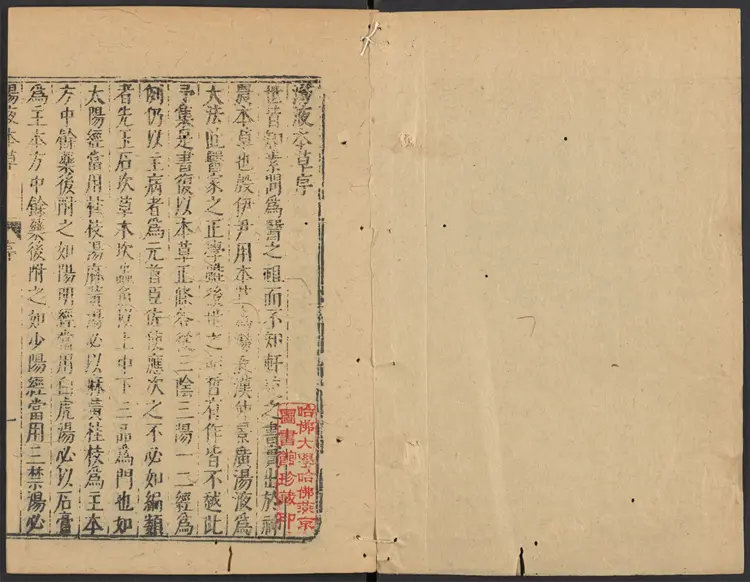 湯液本草序
世皆知素問為醫之祖而不知軒岐之書實出於神
農本草也殷伊尹用本草為湯液漢仲景廣湯液為
大法此醫家之正學雖後世之明哲有作皆不越此
予集是書復以本草正條各從三陰三陽十二經為
例仍以主病者為元首臣佐使應次之不必如編類
者先玉石次草木次蟲魚以上中下三品為門也如
太陽經當用桂枝湯麻黃湯必以麻黃桂枝為主本
方中餘藥後附之如陽明經當用白虎湯必以石膏
為主本方中餘藥後附之如少陽經當用三禁湯必
湯液本草 序 一
哈佛大學哈佛燕京
圖書館珍藏印